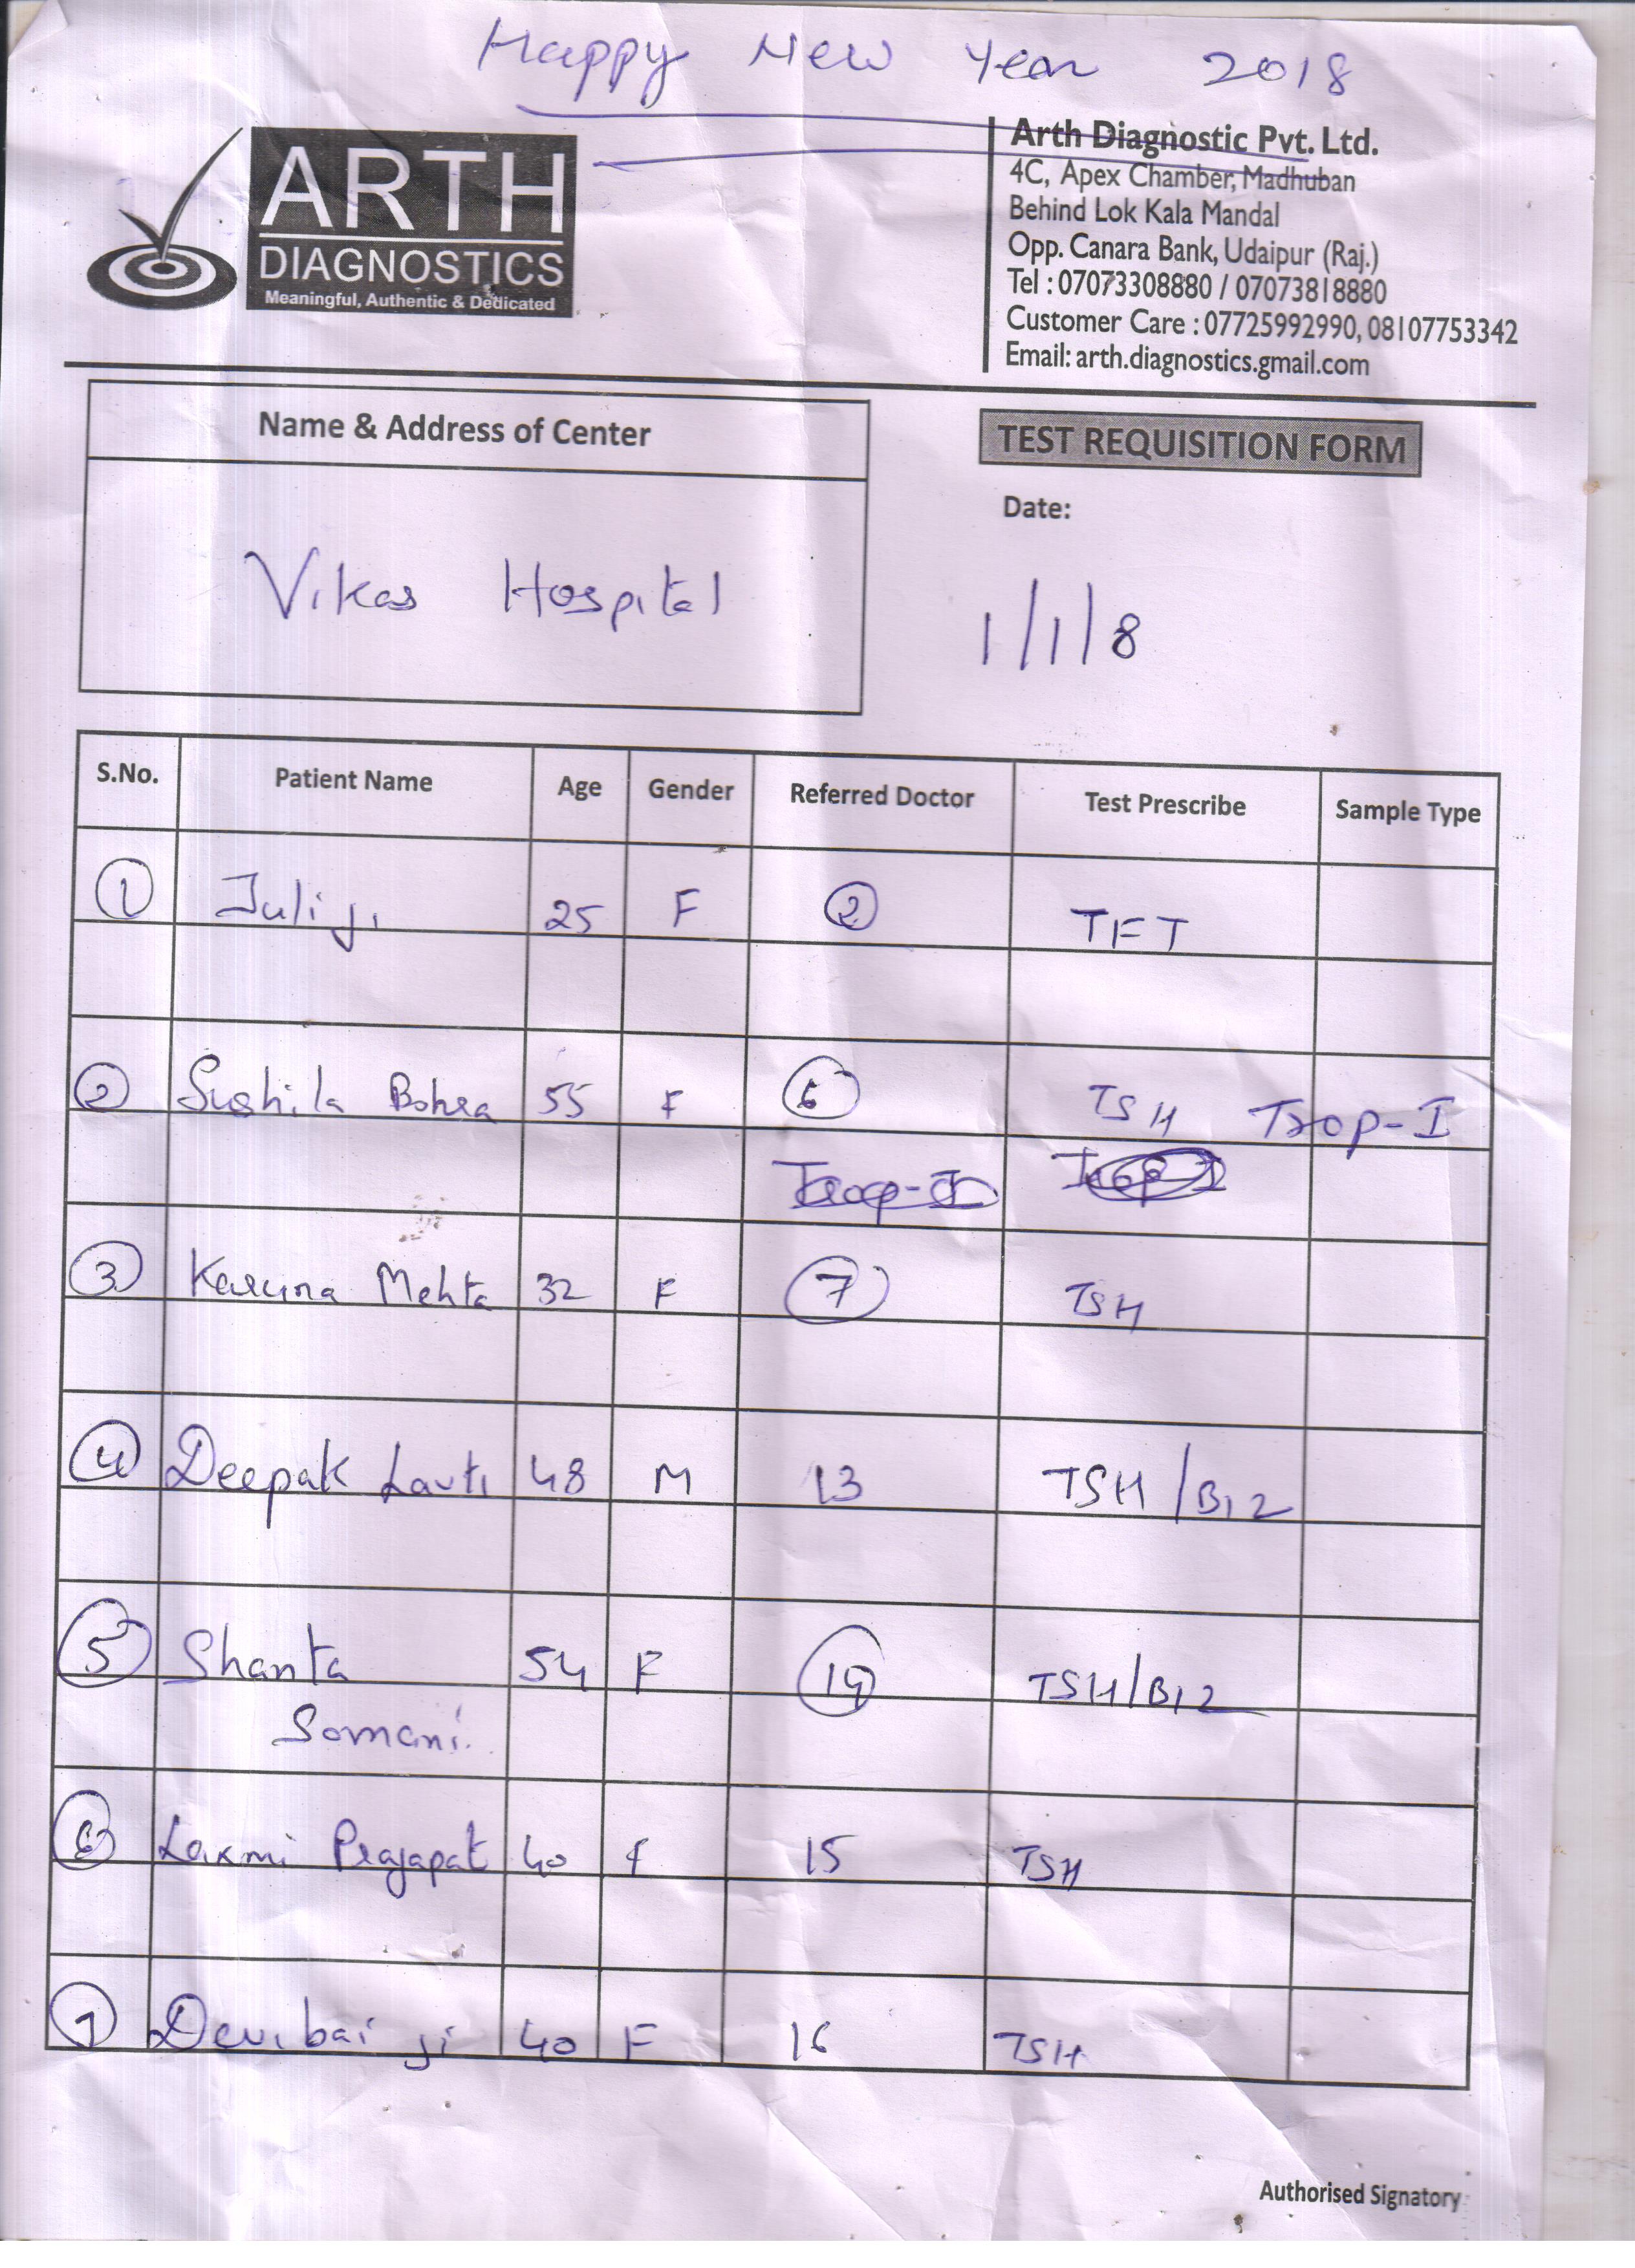 Happy New Year 2018
ARTH
DIAGNOSTICS
Meaningful, Authentic & Dedicated
Arth Diagnostic Pvt. Ltd.
4C, Apex Chamber, Madhuban
Behind Lok Kala Mandal
Opp. Canara Bank, Udaipur (Raj.)
Tel : 07073308880 / 07073818880
Customer Care : 07725992990, 08107753342
Email: arth.diagnostics.gmail.com
Name & Address of Center
Vikas Hospital
TEST REQUISITION FORM
Date:
1/1/8
S.No. Patient Name Age Gender Referred Doctor Test Prescribe Sample Type
1 Juli ji 25 F 2 TFT
2 Sushila Bohra 55 F 6 TSH Trop-I
Trop-I Trop-I
3 Karuna Mehta 32 F 7 TSH
4 Deepak 48 M 13 TSH/B12
5 Shanta 54 F 14 TSH/B12
Somani
6 Laxmi Prajapat 40 F 15 TSH
7 Devibai ji 40 F 16 TSH
Authorised Signatory